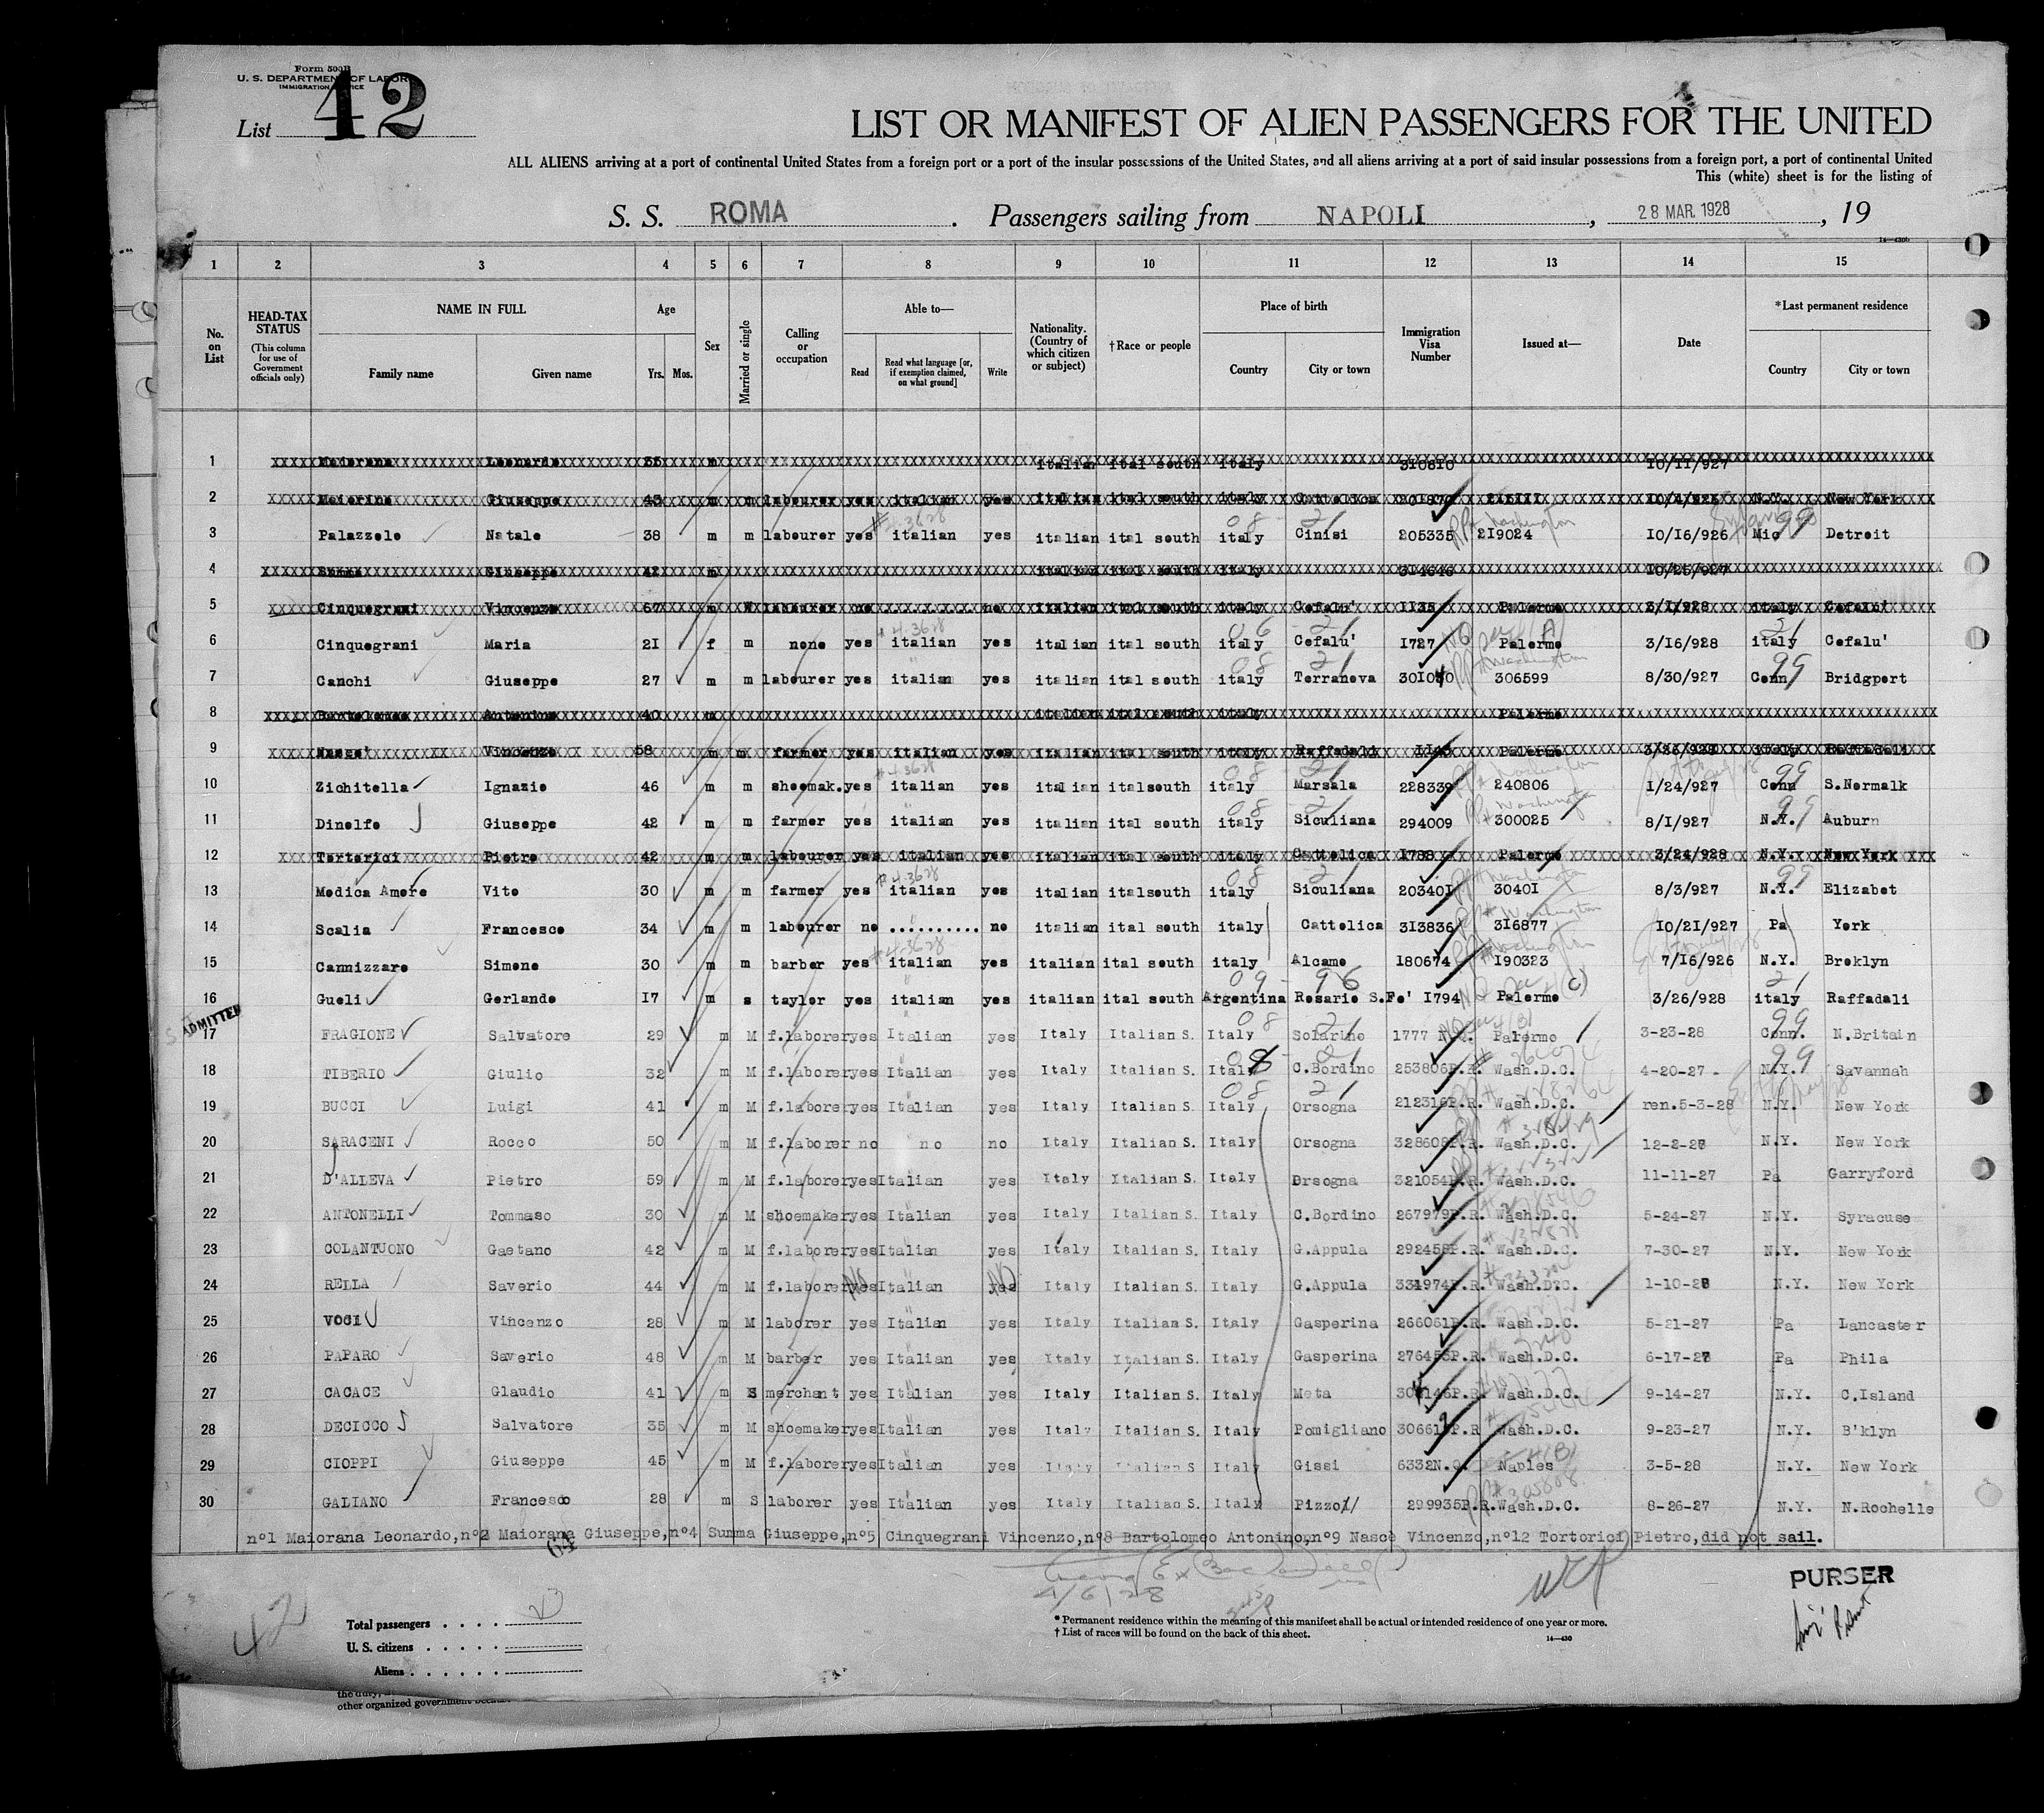 Form 500B
U. S. DEPARTMENT OF LABOR
IMMIGRATION SERVICE
List 42
LIST OR MANIFEST OF ALIEN PASSENGERS FOR THE UNITED
ALL ALIENS arriving at a port of continental United States from a foreign port or a port of the insular possessions of the United States, and all aliens arriving at a port of said insular possessions from a foreign port, a port of continental United
This (white) sheet is for the listing of
S. S. ROMA. Passengers sailing from NAPOLI, 28 MAR. 1928, 19
14—430b
1 2 3 4 5 6 7 8 9 10 11 12 13 14 15
No. on List
HEAD-TAX STATUS (This column for use of Government officials only)
NAME IN FULL Family name Given name
Age Yrs. Mos.
Sex
Married or single
Calling or occupation
Able to— Read Read what language [or, if exemption claimed, on what ground] Write
Nationality. (Country of which citizen or subject)
†Race or people
Place of birth Country City or town
Immigration Visa Number
Issued at—
Date
*Last permanent residence Country City or town
1 Maiorana Leonardo 35 m italian ital south italy 310810 10/11/927
2 Maiorine Giuseppe 43 m m labourer yes italian yes italian ital south italy Cattolica N.Y. New York
3 Palazzolo Natale 38 m m labourer yes italian yes italian ital south italy Cinisi 205335 219024 10/16/926 Mic Detroit
4 Summa Giuseppe 42 m italian ital south italy 314646 10/25/927
5 Cinquegrani Vincenzo 67 m W labourer no no italian ital south italy Cefalu' 1135 Palermo 3/1/928 italy Cefalu'
6 Cinquegrani Maria 21 f m none yes italian yes italian ital south italy Cefalu' 1727 Palermo 3/16/928 italy Cefalu'
7 Canchi Giuseppe 27 m m labourer yes italian yes italian ital south italy Terranova 301040 306599 8/30/927 Conn Bridgport
8 Bartolomeo Antonino 40 m italian ital south italy Palermo
9 Nasce' Vincenzo 58 m m farmer yes italian yes italian ital south italy Raffadali 1145 Palermo 3/26/928 italy Raffadali
10 Zichitella Ignazio 46 m m shoemak. yes italian yes italian italsouth italy Marsala 228339 240806 1/24/927 Conn S.Normalk
11 Dinolfo Giuseppe 42 m m farmer yes italian yes italian ital south italy Siculiana 294009 300025 8/1/927 N.Y. Auburn
12 Tortorici Pietro 42 m m labourer yes italian yes italian ital south italy Cattolica 1788 Palermo 3/24/928 N.Y. New York
13 Modica Amore Vito 30 m m farmer yes italian yes italian italsouth italy Siculiana 203401 30401 8/3/927 N.Y. Elizabet
14 Scalia Francesco 34 m m labourer no .......... no italian ital south italy Cattolica 313836 316877 10/21/927 Pa York
15 Cannizzaro Simone 30 m m barber yes italian yes italian ital south italy Alcamo 180674 190323 7/16/926 N.Y. Broklyn
16 Gueli Gerlando 17 m s taylor yes italian yes italian ital south Argentina Rosario S.Fe' 1794 Palermo 3/26/928 italy Raffadali
ADMITTED
17 FRAGIONE Salvatore 29 m M f.laborer yes Italian yes Italy Italian S. Italy Solarino 1777 N.Q. Palermo 3-23-28 Conn. N.Britain
18 TIBERIO Giulio 32 m M f.laborer yes Italian yes Italy Italian S. Italy C.Bordino 253806P.R. Wash.D.C. 4-20-27 N.Y. Savannah
19 BUCCI Luigi 41 m M f.laborer yes Italian yes Italy Italian S. Italy Orsogna 212316P.R. Wash.D.C. ren.5-3-28 N.Y. New York
20 SARACENI Rocco 50 m M f.laborer no no no Italy Italian S. Italy Orsogna 328608P.R. Wash.D.C. 12-2-27 N.Y. New York
21 D'ALLEVA Pietro 59 m M f.laborer yes Italian yes Italy Italian S. Italy Orsogna 321054P.R. Wash.D.C. 11-11-27 Pa Garryford
22 ANTONELLI Tommaso 30 m M shoemaker yes Italian yes Italy Italian S. Italy C.Bordino 267979P.R. Wash.D.C. 5-24-27 N.Y. Syracuse
23 COLANTUONO Gaetano 42 m M f.laborer yes Italian yes Italy Italian S. Italy G.Appula 292458P.R. Wash.D.C. 7-30-27 N.Y. New York
24 RELLA Saverio 44 m M f.laborer yes NO Italian yes NO Italy Italian S. Italy G.Appula 331974P.R. Wash.D.C. 1-10-28 N.Y. New York
25 VOCI Vincenzo 28 m M laborer yes Italian yes Italy Italian S. Italy Gasperina 266061P.R. Wash.D.C. 5-21-27 Pa Lancaster
26 PAPARO Saverio 48 m M barber yes Italian yes Italy Italian S. Italy Gasperina 276455P.R. Wash.D.C. 6-17-27 Pa Phila
27 CACACE Glaudio 41 m S merchant yes Italian yes Italy Italian S. Italy Meta 304146P.R. Wash.D.C. 9-14-27 N.Y. C.Island
28 DECICCO Salvatore 35 m M shoemaker yes Italian yes Italy Italian S. Italy Pomigliano 306619P.R Wash.D.C. 9-23-27 N.Y. B'klyn
29 CIOPPI Giuseppe 45 m M f.laborer yes Italian yes Italy Italian S Italy Gissi 6332N.Q. Naples 3-5-28 N.Y. New York
30 GALIANO Francesco 28 m S laborer yes Italian yes Italy Italian S. Italy Pizzo 299935P.R. Wash.D.C. 8-26-27 N.Y. N.Rochelle
n°1 Maiorana Leonardo, n°2 Maiorana Giuseppe, n°4 Summa Giuseppe, n°5 Cinquegrani Vincenzo, n°8 Bartolomeo Antonino, n°9 Nasce Vincenzo, n°12 Tortorici Pietro, did not sail.
64
4/6/28
42
PURSER
Total passengers . . . .
U. S. citizens . . . . .
Aliens . . . . . .
* Permanent residence within the meaning of this manifest shall be actual or intended residence of one year or more.
† List of races will be found on the back of this sheet.
14—430
other organized government because